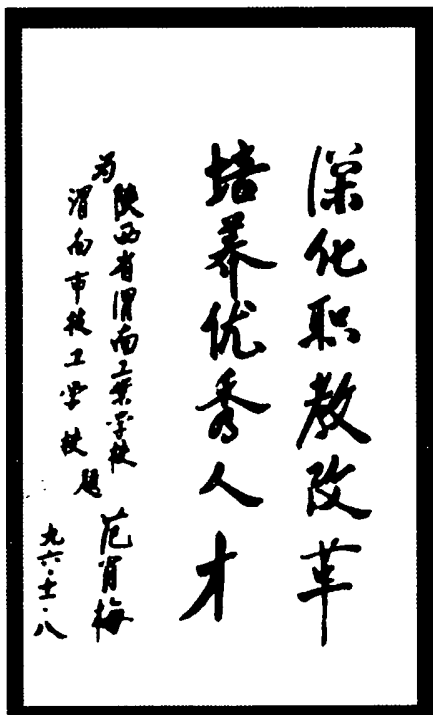 深化职教改革
培养优秀人才
为陕西省渭南工业学校
渭南市技工学校题
范肖梅
九六·十一·八